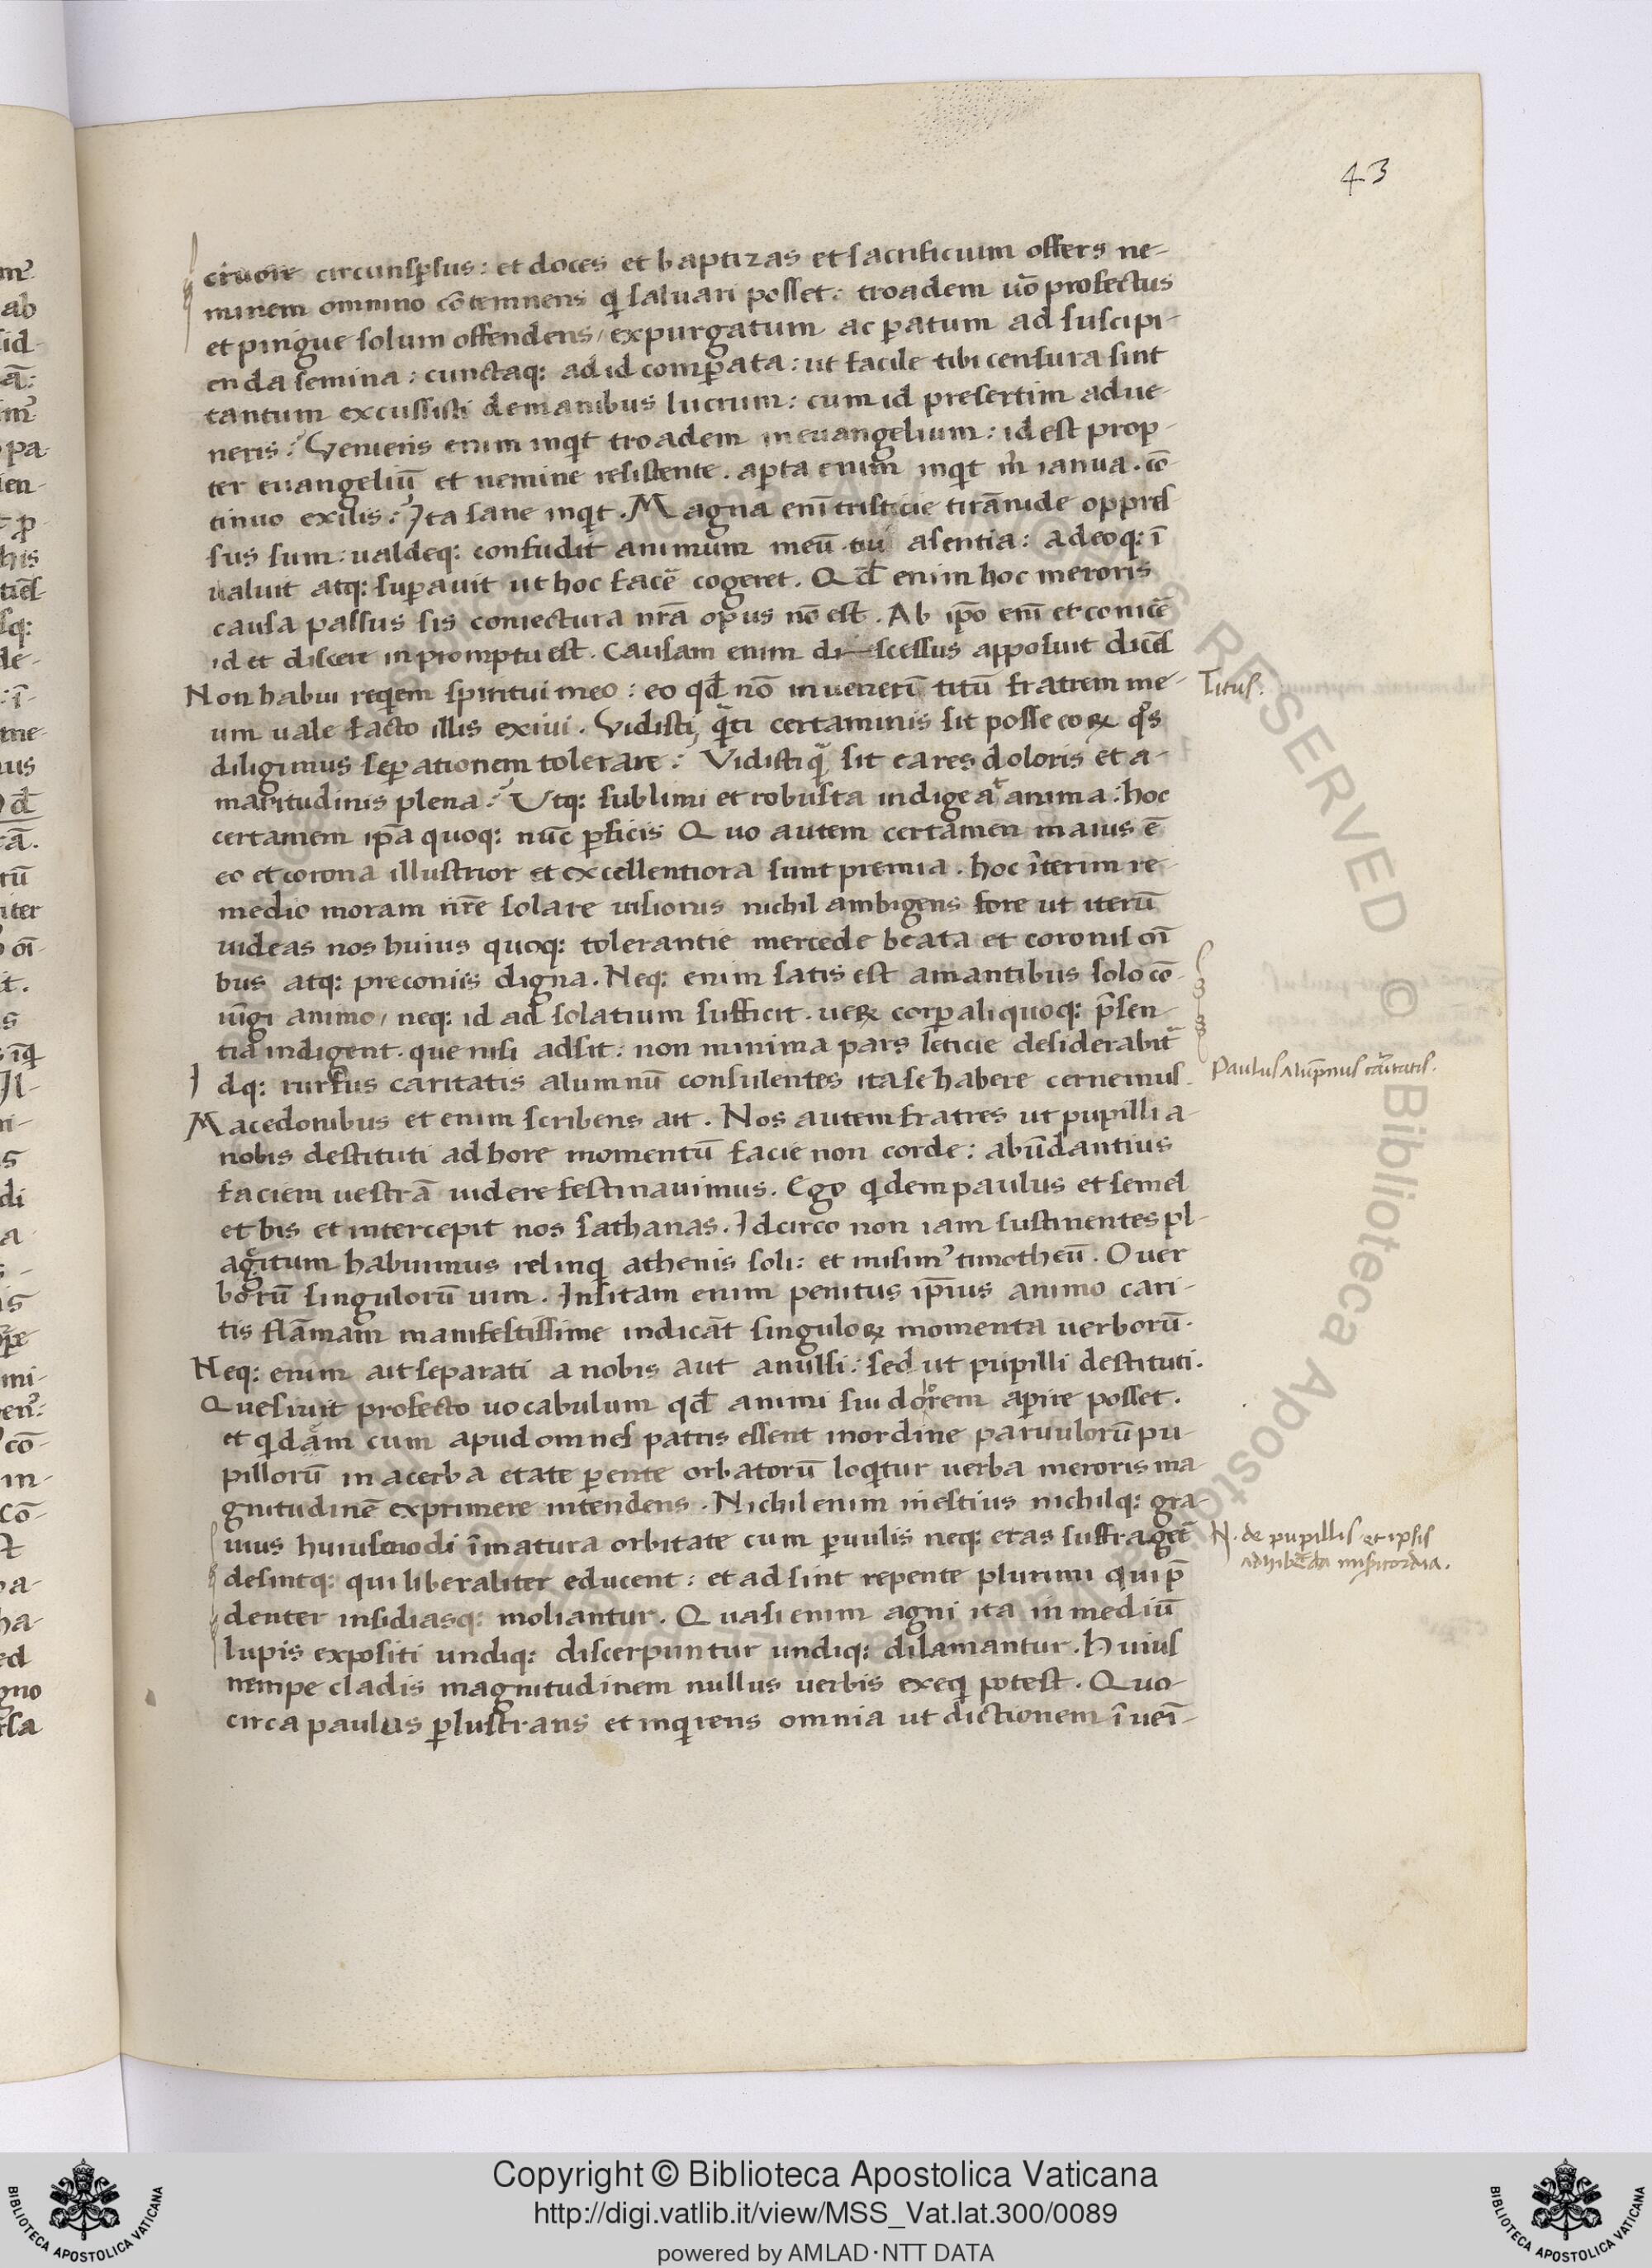 43
cruore circunsꝑsus: et doces et baptizas et sacrificium offers ne-
minem omnino cōtemnens q̇ saluari posset: troadem uō profectus
et pingue solum offendens, expurgatum ac ꝑatum ad suscipi-
enda semina: cunctaq: ad id comꝑata: ut facile tibi censura sint
tantum excussisti demanibus lucrum: cum id presertim adue-
neris? Venieris enim inq̇t troadem in euangelium: id est prop-
ter euangeliū et nemine resistente. aꝑta enim inq̇t m̄ ianua. cō-
tinuo exilis? Ita sane inq̇t. Magna enī tristicie tirānide oppres-
sus sum: ualdeq: confudit animum meū titi asentia: adeoq: ī
ualuit atq: suꝑauit ut hoc facē cogeret. Qd̄ enim hoc meroris
causa passus sis coniectura nrā opus nō est. Ab ip̄o enī et conicē
id et discere in promptu est. Causam enim discessus apposuit dicēs
Non habui req̇em spiritui meo: eo qd̄ nō inuenerī titū fratrem me-
um uale facto illis exiui. Vidisti, q̄ti certaminis sit posse eoꝝ q̊s
diligimus seꝑationem tolerare? Vidisti q̄ sit ea res doloris et a-
maritudinis plena? Utq: sublimi et robusta indigeat anima: hoc
certamem ip̄a quoq: nūc ꝑficis Quo autem certamen maius ē
eo et corona illustrior et excellentiora sunt premia. hoc īterim re-
medio moram nr̄e solare uisionis nichil ambigens fore ut iterū
uideas nos huius quoq: tolerantie mercede beata et coronis oī
bus atq: preconiis digna. Neq: enim satis est amantibus solo cō-
iūgi animo, neq: id ad solatium sufficit. ueꝝ corꝑali quoq: p̄sen-
tia indigent. que nisi adsit: non minima pars leticie desiderabit̄
Idq: rursus caritatis alumnū consulentes ita se habere cernemus.
Macedonibus et enim scribens ait. Nos autem fratres ut pupilli a-
nobis destituti ad hore momentū facie non corde: abūdantius
faciem uestrā uidere festinauimus. Ego q̇dem paulus et semel
et bis et intercepit nos sathanas. Idcirco non iam sustinentes pl-
agitum habuimus relinq̇ athenis soli: et misim' timotheū. O uer
borū singulorū uim. Insitam enim penitus ip̄ius animo cari-
tis flāmam manifestissime indicāt singuloꝝ momenta uerborū.
Neq: enim ait separati a nobis aut anulsi: sed ut pupilli destituti.
Quesiuit profecto uocabulum qd̄ animi sui dolorem aꝑire posset.
et q̇dam cum apud omnes patris essent inordine paruulorū pu-
pillorū in acerba etate ꝑente orbatorū loq̇tur uerba meroris ma
gnitudinē exprimere intendens. Nichil enim mestius nichilq: gra-
uius huiuscemodi īmatura orbitate cum ꝑuulis neq: etas suffraget̄
desintq: qui liberaliter educent: et adsint repente plurimi qui p̄
denter insidiasq: moliantur. Quasi enim agni ita in mediū
lupis expositi undiq: discerpuntur undiq: dilamantur. Huius
nempe cladis magnitudinem nullus uerbis exeq̇ potest. Quo-
circa paulus ꝑlustrans et inq̇rens omnia ut dictionem īueī-
Titus.
Paulus alūpnus c̄aritatis.
N. de pupillis et ipsis
adhibēda mis̄icordia.
Copyright © Biblioteca Apostolica Vaticana
http://digi.vatlib.it/view/MSS_Vat.lat.300/0089
powered by AMLAD·NTT DATA
BIBLIOTECA APOSTOLICA VATICANA
BIBLIOTECA APOSTOLICA VATICANA